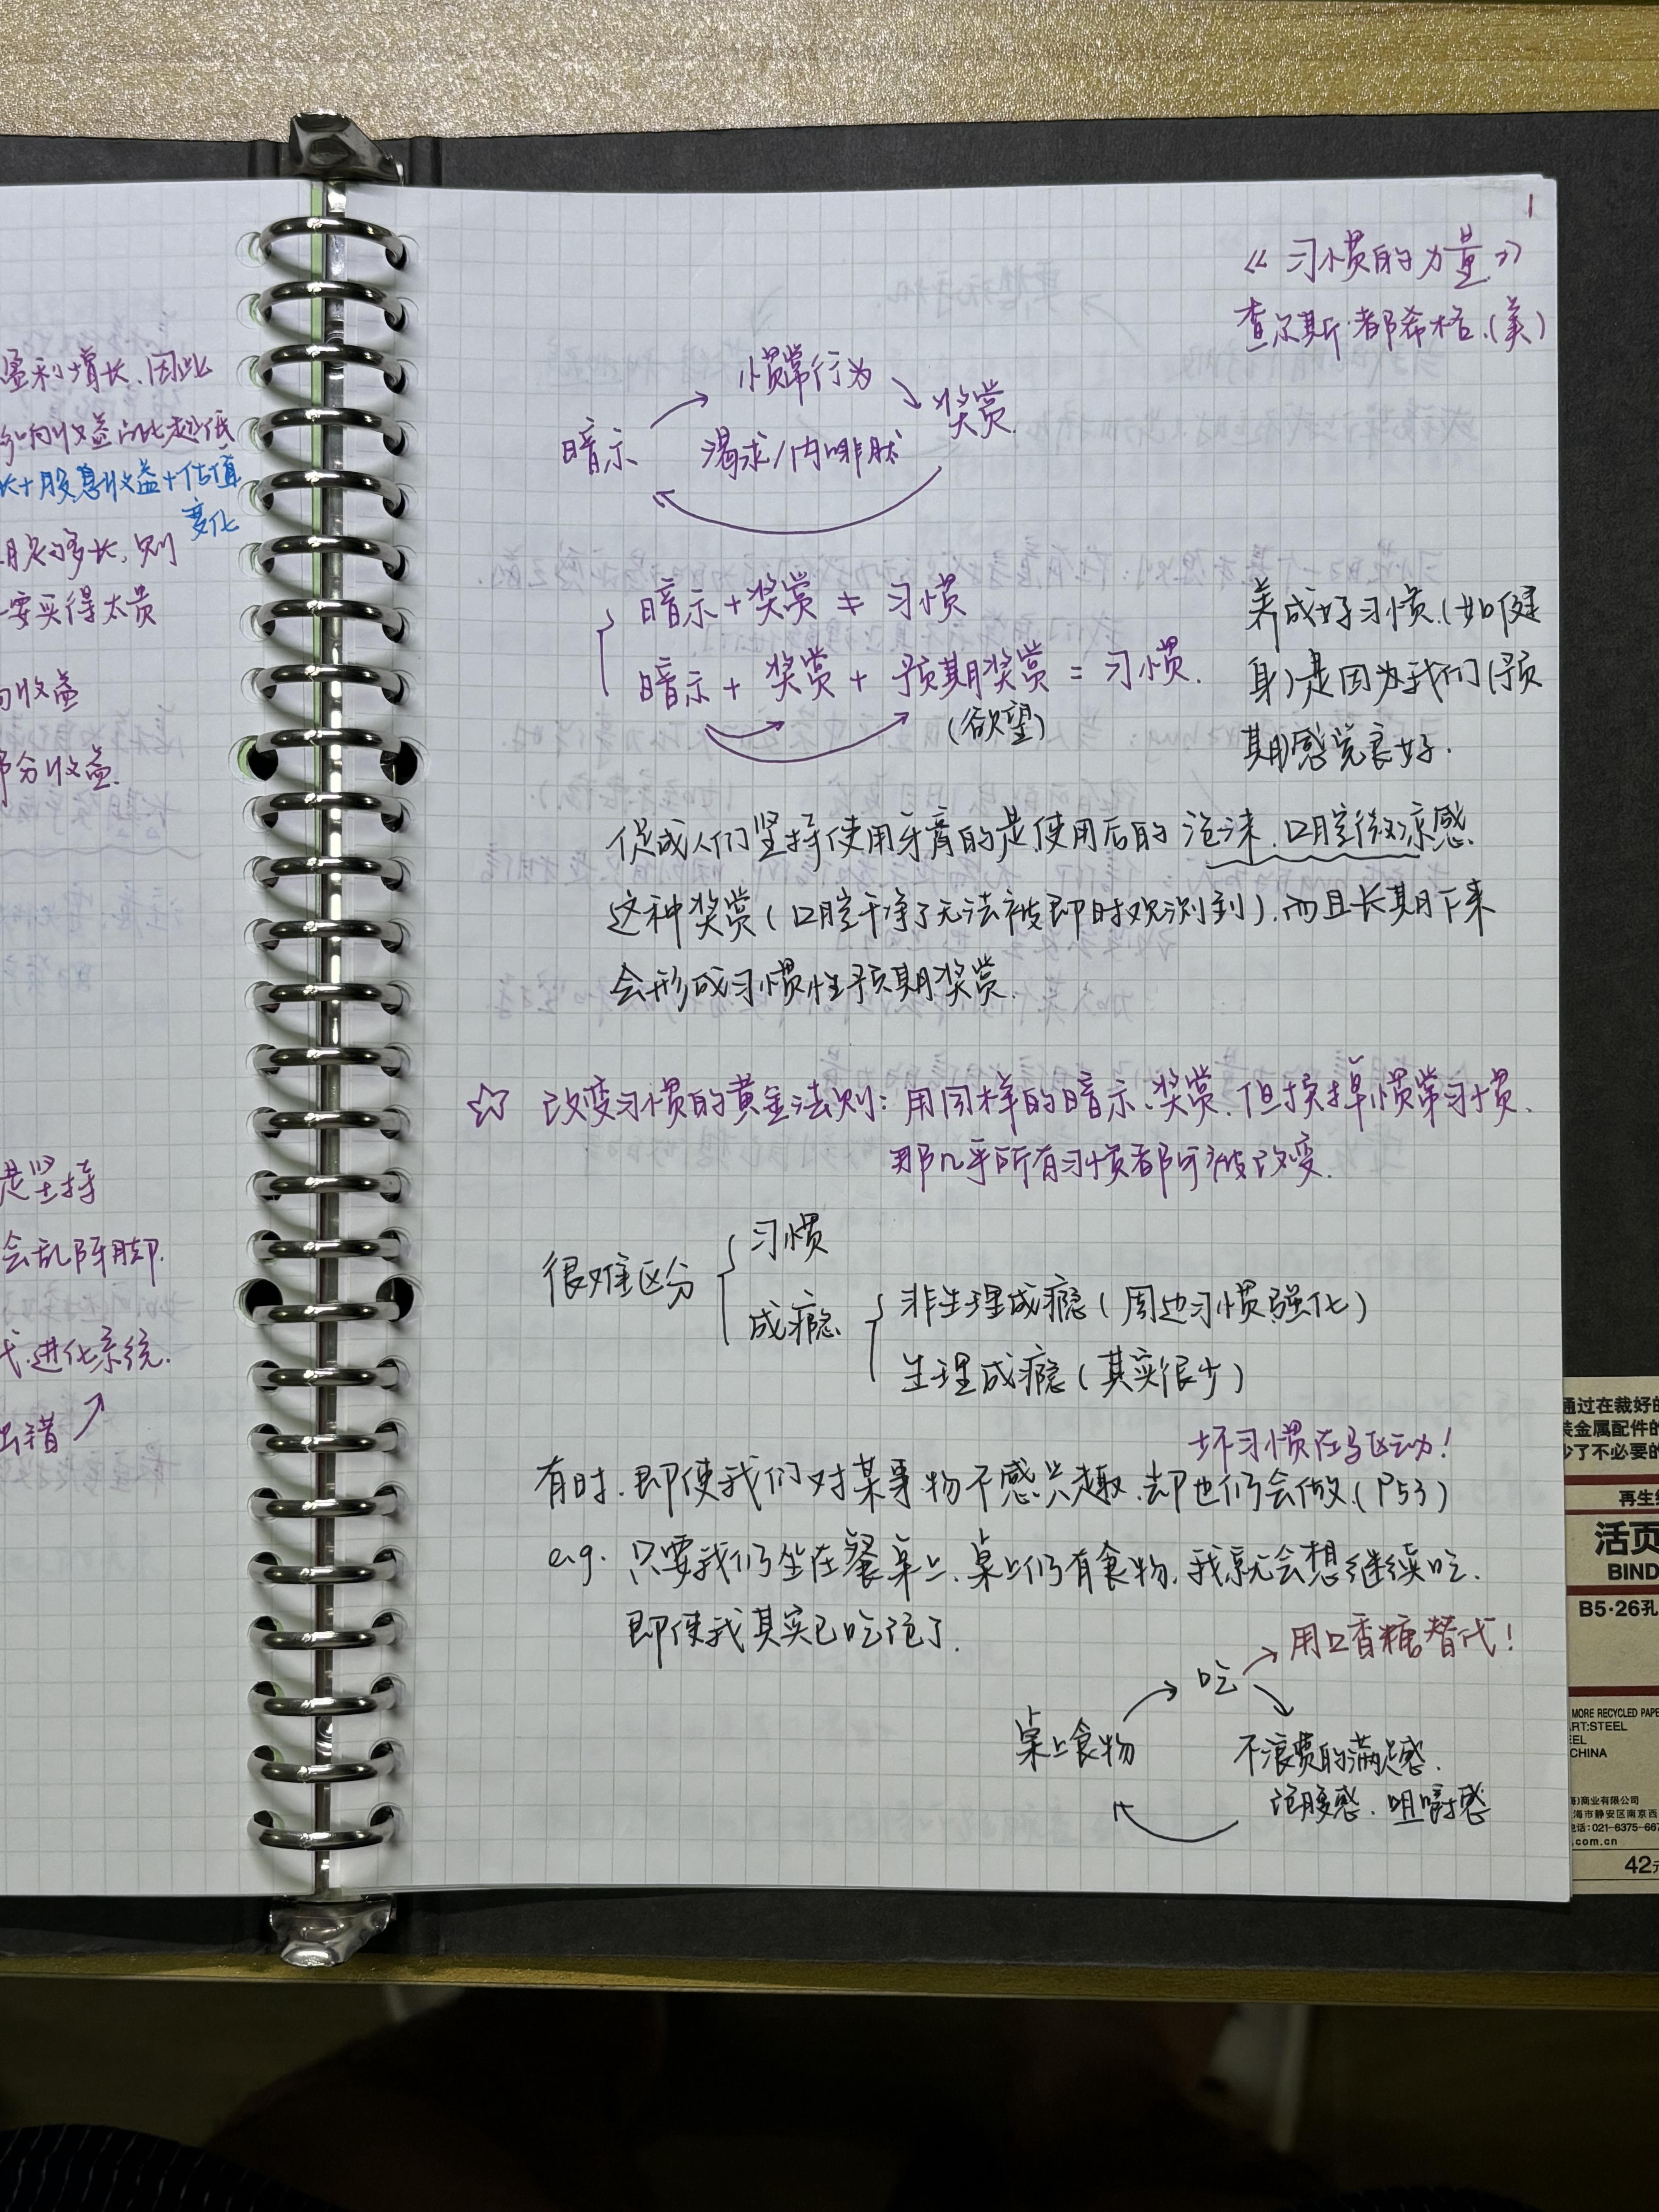 盈利增长.因此
收益的比越低
长+股息收益+估值
变化
的多长,则
要买得太贵
收益
部分收益.
是坚持
会乱阵脚.
式.进化系统.
出错
1
《习惯的力量》
查尔斯·都希格.(美)
惯常行为
暗示
渴求/内啡肽
奖赏.
暗示+奖赏≠习惯
暗示+奖赏+预期奖赏=习惯.
(欲望)
养成好习惯.(如健
身)是因为我们预
期感觉良好.
促成人们坚持使用牙膏的是使用后的泡沫.口腔微凉感.
这种奖赏(口腔干净了无法被即时观测到).而且长期下来
会形成习惯性预期奖赏.
☆ 改变习惯的黄金法则:用同样的暗示、奖赏.但换掉惯常习惯.
那几乎所有习惯都可被改变.
很难区分
习惯
成瘾
非生理成瘾(周边习惯强化)
生理成瘾(其实很少)
坏习惯在驱动!
有时.即使我们对某事.物不感兴趣.却也仍会做.(P53)
e.g. 只要我仍坐在餐桌上.桌上仍有食物.我就会想继续吃.
即使我其实已吃饱了.
用口香糖替代!
吃
桌上食物
不浪费的满足感.
饱腹感.咀嚼感
通过在裁好的
装金属配件的
少了不必要的
再生纸
活页
BIND
B5·26孔
MORE RECYCLED PAPE
ART:STEEL
EL
CHINA
商业有限公司
海市静安区南京西
电话:021-6375-667
.com.cn
42元